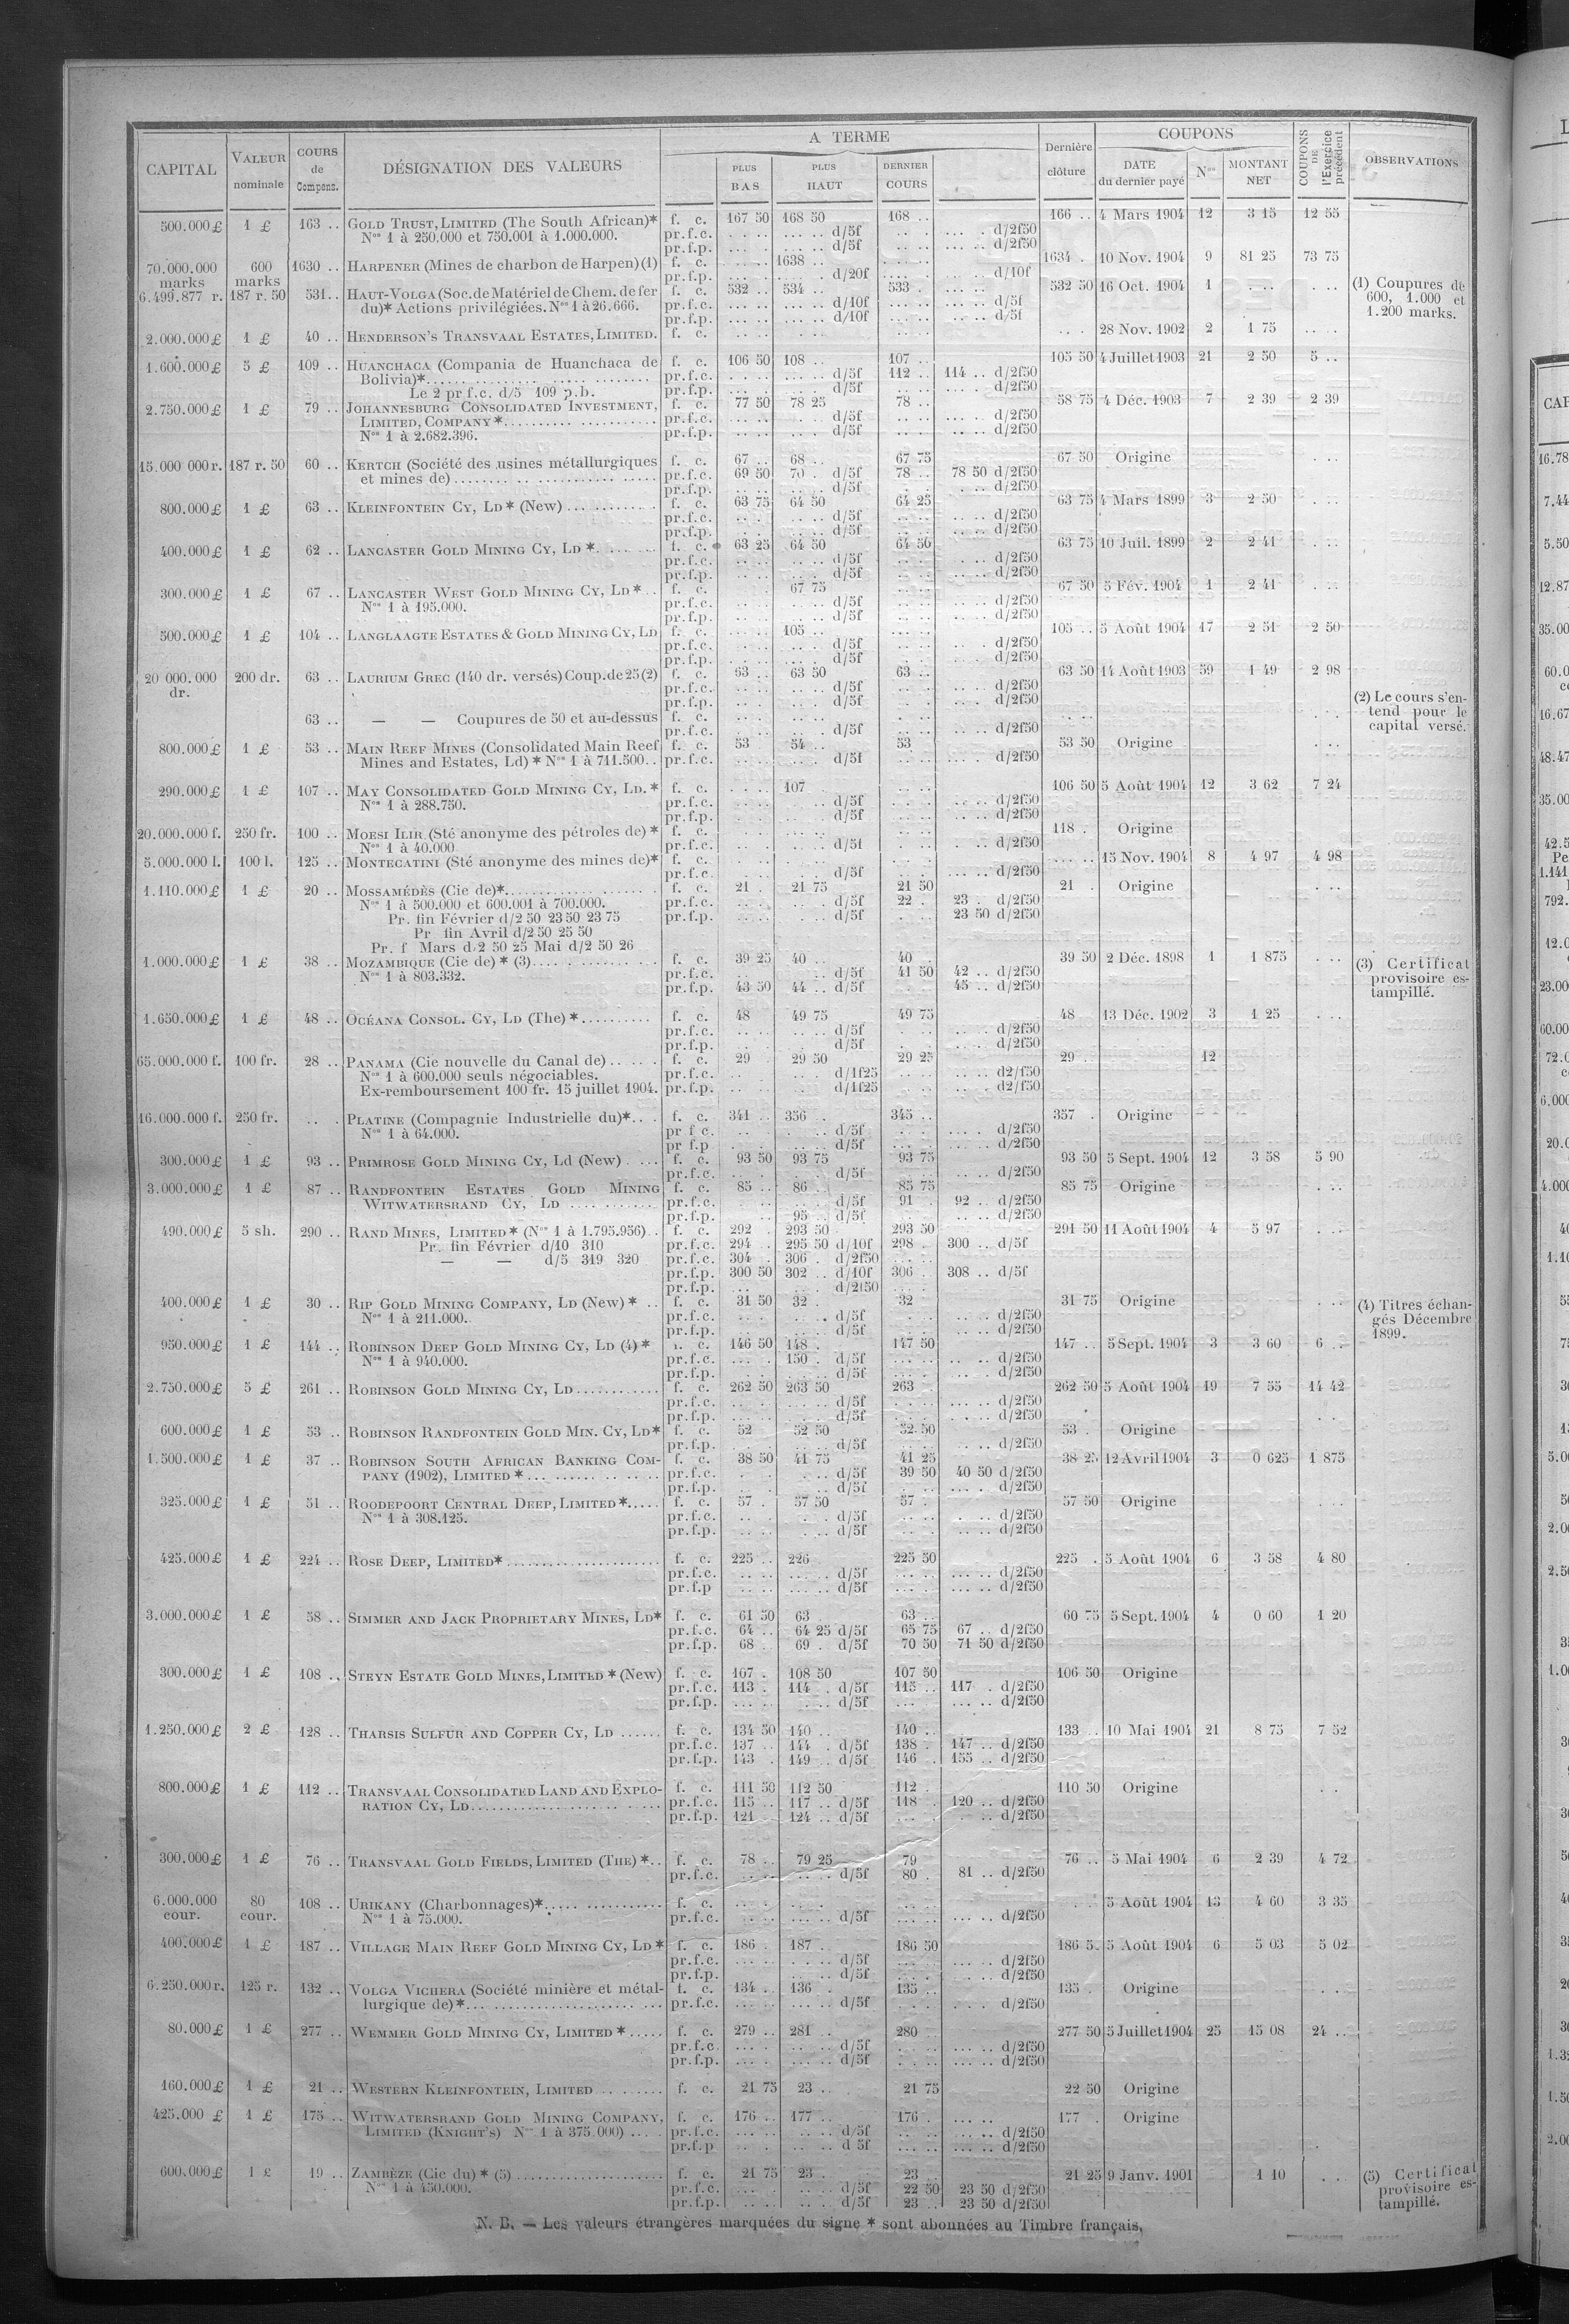 CAPITAL | VALEUR nominale | COURS de Compens. | DÉSIGNATION DES VALEURS | A TERME | PLUS BAS | PLUS HAUT | DERNIER COURS | Dernière clôture | COUPONS | DATE du dernier payé | Nos | MONTANT NET | COUPONS DE l'Exercice précédent | OBSERVATIONS
500.000 £ 1 £ 163 .. GOLD TRUST, LIMITED (The South African)* f. c. 167 50 168 50 168 .. 166 .. 4 Mars 1904 12 3 15 12 55
Nos 1 à 250.000 et 750.001 à 1.000.000. pr.f.c. d/5f d/2f50
pr.f.p. d/5f d/2f50
70.000.000 marks 600 marks 1630 .. HARPENER (Mines de charbon de Harpen)(1) f. c. 1638 .. 1634 . 10 Nov. 1904 9 81 25 73 75
pr.f.p. d/20f d/10f
6.499.877 r. 187 r. 50 531.. HAUT-VOLGA (Soc. de Matériel de Chem. de fer f. c. 532 .. 534 .. 533 . 532 50 16 Oct. 1904 1 (1) Coupures de
du)* Actions privilégiées. Nos 1 à 26.666. pr.f.c. d/10f d/5f 600, 1.000 et
pr.f.p. d/10f d/5f 1.200 marks.
2.000.000 £ 1 £ 40 .. HENDERSON'S TRANSVAAL ESTATES, LIMITED. f. c. 28 Nov. 1902 2 1 75
1.600.000 £ 5 £ 109 .. HUANCHACA (Compania de Huanchaca de f. c. 106 50 108 .. 107 .. 105 50 4 Juillet 1903 21 2 50 5 ..
Bolivia)* pr.f.c. d/5f 112 .. 114 .. d/2f50
Le 2 pr f.c. d/5 109 p.b. pr.f.p. d/5f d/2f50
2.750.000 £ 1 £ 79 .. JOHANNESBURG CONSOLIDATED INVESTMENT, f. c. 77 50 78 25 78 .. 58 75 4 Déc. 1903 7 2 39 2 39
LIMITED, COMPANY* pr.f.c. d/5f d/2f50
Nos 1 à 2.682.396. pr.f.p. d/5f d/2f50
15.000 000 r. 187 r. 50 60 .. KERTCH (Société des usines métallurgiques f. c. 67 .. 68 .. 67 75 67 50 Origine
et mines de) pr.f.c. 69 50 70 . d/5f 78 .. 78 50 d/2f50
pr.f.p. d/5f d/2f50
800.000 £ 1 £ 63 .. KLEINFONTEIN CY, LD* (New) f. c. 63 75 64 50 64 25 63 75 4 Mars 1899 3 2 50
pr.f.c. d/5f d/2f50
pr.f.p. d/5f d/2f50
400.000 £ 1 £ 62 .. LANCASTER GOLD MINING CY, LD * f. c. 63 25 64 50 64 50 63 75 10 Juil. 1899 2 2 41
pr.f.c. d/5f d/2f50
pr.f.p. d/5f d/2f50
300.000 £ 1 £ 67 .. LANCASTER WEST GOLD MINING CY, LD* f. c. 67 75 67 50 5 Fév. 1904 1 2 41
Nos 1 à 195.000. pr.f.c. d/5f d/2f50
pr.f.p. d/5f d/2f50
500.000 £ 1 £ 104 .. LANGLAAGTE ESTATES & GOLD MINING CY, LD f. c. 105 .. 105 .. 5 Août 1904 17 2 51 2 50
pr.f.c. d/5f d/2f50
pr.f.p. d/5f d/2f50
20 000.000 dr. 200 dr. 63 .. LAURIUM GREC (140 dr. versés) Coup. de 25 (2) f. c. 63 .. 63 50 63 .. 63 50 14 Août 1903 59 1 49 2 98
pr.f.c. d/5f d/2f50 (2) Le cours s'en-
pr.f.p. d/5f d/2f50 tend pour le
63 .. — — Coupures de 50 et au-dessus f. c. capital versé.
pr.f.c. d/5f d/2f50
800.000 £ 1 £ 53 .. MAIN REEF MINES (Consolidated Main Reef f. c. 53 54 .. 53 53 50 Origine
Mines and Estates, Ld) * Nos 1 à 711.500.. pr.f.c. d/5f d/2f50
290.000 £ 1 £ 107 .. MAY CONSOLIDATED GOLD MINING CY, LD. * f. c. 107 106 50 5 Août 1904 12 3 62 7 24
Nos 1 à 288.750. pr.f.c. d/5f d/2f50
pr.f.p. d/5f d/2f50
20.000.000 f. 250 fr. 100 .. MOESI ILIR (Sté anonyme des pétroles de) * f. c. 118 . Origine
Nos 1 à 40.000 pr.f.c. d/5f d/2f50
5.000.000 l. 100 l. 125 .. MONTECATINI (Sté anonyme des mines de)* f. c. 15 Nov. 1904 8 4 97 4 98
pr.f.c. d/5f d/2f50
1.110.000 £ 1 £ 20 .. MOSSAMÉDÈS (Cie de)* f. c. 21 . 21 75 21 50 21 . Origine
Nos 1 à 500.000 et 600.001 à 700.000. pr.f.c. d/5f 22 . 23 . d/2f50
Pr. fin Février d/2 50 23 50 23 75 pr.f.p. d/5f 23 50 d/2f50
Pr fin Avril d/2 50 25 50
Pr. f Mars d/2 50 25 Mai d/2 50 26
1.000.000 £ 1 £ 38 .. MOZAMBIQUE (Cie de) * (3) f. c. 39 25 40 .. 40 . 39 50 2 Déc. 1898 1 1 875 (3) Certificat
Nos 1 à 803.332. pr.f.c. d/5f 41 50 42 .. d/2f50 provisoire es-
pr.f.p. 43 50 44 .. d/5f 45 .. d/2f50 tampillé.
1.650.000 £ 1 £ 48 .. OCÉANA CONSOL. CY, LD (The) * f. c. 48 49 75 49 75 48 13 Déc. 1902 3 1 25
pr.f.c. d/5f d/2f50
pr.f.p. d/5f d/2f50
65.000.000 f. 100 fr. 28 .. PANAMA (Cie nouvelle du Canal de) f. c. 29 29 50 29 25 29 .. 12
Nos 1 à 600.000 seuls négociables. pr.f.c. d/1f25 d2/f50
Ex-remboursement 100 fr. 15 juillet 1904. pr.f.p. d/1f25 d2/f50
16.000.000 f. 250 fr. PLATINE (Compagnie Industrielle du)* f. c. 341 .. 356 .. 345 .. 357 . Origine
Nos 1 à 64.000. pr f c. d/5f d/2f50
pr f.p d/5f d/2f50
300.000 £ 1 £ 93 .. PRIMROSE GOLD MINING CY, Ld (New) f. c. 93 50 93 75 93 75 93 50 5 Sept. 1904 12 3 58 5 90
pr.f.c. d/5f d/2f50
3.000.000 £ 1 £ 87 .. RANDFONTEIN ESTATES GOLD MINING f. c. 85 .. 86 .. 85 75 85 75 Origine
WITWATERSRAND CY, LD pr.f.c. d/5f 91 . 92 .. d/2f50
pr.f.p. 95 .. d/5f d/2f50
490.000 £ 5 sh. 290 .. RAND MINES, LIMITED * (Nos 1 à 1.795.956) f. c. 292 . 293 50 293 50 291 50 11 Août 1904 4 5 97
Pr. fin Février d/10 310 pr.f.c. 294 . 295 50 d/10f 298 . 300 .. d/5f
— — d/5 319 320 pr.f.c. 304 . 306 . d/2f50
pr.f.p. 300 50 302 .. d/10f 306 . 308 .. d/5f
pr.f.p. d/2f50
400.000 £ 1 £ 30 .. RIP GOLD MINING COMPANY, LD (New) * .. f. c. 31 50 32 . 32 31 75 Origine (4) Titres échan-
Nos 1 à 211.000. pr.f.c. d/5f d/2f50 gés Décembre
pr.f.p. d/5f d/2f50 1899.
950.000 £ 1 £ 144 .. ROBINSON DEEP GOLD MINING CY, LD (4) * c. 146 50 148 . 147 50 147 .. 5 Sept. 1904 3 3 60 6 ..
Nos 1 à 940.000. pr.f.c. 150 . d/5f d/2f50
pr.f.p. d/5f d/2f50
2.750.000 £ 5 £ 261 .. ROBINSON GOLD MINING CY, LD f. c. 262 50 263 50 263 262 50 5 Août 1904 19 7 55 14 42
pr.f.c. d/5f d/2f50
pr.f.p. d/5f d/2f50
600.000 £ 1 £ 53 .. ROBINSON RANDFONTEIN GOLD MIN. CY, LD* f. c. 52 52 50 52 50 53 . Origine
pr.f.p. d/5f d/2f50
1.500.000 £ 1 £ 37 .. ROBINSON SOUTH AFRICAN BANKING COM- f. c. 38 50 41 75 41 25 38 25 12 Avril 1904 3 0 625 1 875
PANY (1902), LIMITED * pr.f.c. d/5f 39 50 40 50 d/2f50
pr.f.p. d/5f d/2f50
325.000 £ 1 £ 51 .. ROODEPOORT CENTRAL DEEP, LIMITED* f. c. 57 . 57 50 57 . 57 50 Origine
Nos 1 à 308.125. pr.f.c. d/5f d/2f50
pr.f.p. d/5f d/2f50
425.000 £ 1 £ 224 .. ROSE DEEP, LIMITED* f. c. 225 .. 226 225 50 225 . 5 Août 1904 6 3 58 4 80
pr.f.c. d/5f d/2f50
pr.f.p d/5f d/2f50
3.000.000 £ 1 £ 58 .. SIMMER AND JACK PROPRIETARY MINES, LD* f. c. 61 50 63 . 63 .. 60 75 5 Sept. 1904 4 0 60 1 20
pr.f.c. 64 .. 64 25 d/5f 65 75 67 .. d/2f50
pr.f.p. 68 . 69 . d/5f 70 50 71 50 d/2f50
300.000 £ 1 £ 108 .. STEYN ESTATE GOLD MINES, LIMITED * (New) f. c. 107 . 108 50 107 50 106 50 Origine
pr.f.c. 113 . 114 . d/5f 115 .. 117 . d/2f50
pr.f.p. d/5f d/2f50
1.250.000 £ 2 £ 128 .. THARSIS SULFUR AND COPPER CY, LD f. c. 134 50 140 .. 140 .. 133 .. 10 Mai 1904 21 8 75 7 52
pr.f.c. 137 .. 144 . d/5f 138 . 147 .. d/2f50
pr.f.p. 143 . 149 .. d/5f 146 . 155 .. d/2f50
800.000 £ 1 £ 112 .. TRANSVAAL CONSOLIDATED LAND AND EXPLO- f. c. 111 50 112 50 112 . 110 50 Origine
RATION CY, LD pr.f.c. 115 .. 117 .. d/5f 118 . 120 .. d/2f50
pr.f.p. 121 124 .. d/5f d/2f50
300.000 £ 1 £ 76 .. TRANSVAAL GOLD FIELDS, LIMITED (THE) *.. f. c. 78 .. 79 25 79 76 .. 5 Mai 1904 6 2 39 4 72
pr.f.c. d/5f 80 . 81 .. d/2f50
6.000.000 cour. 80 cour. 108 .. URIKANY (Charbonnages)* f. c. 5 Août 1904 13 4 60 3 35
Nos 1 à 75.000. pr.f.c. d/5f d/2f50
400.000 £ 1 £ 187 .. VILLAGE MAIN REEF GOLD MINING CY, LD * f. c. 186 . 187 . 186 50 186 5. 5 Août 1904 6 5 03 5 02
pr.f.c. d/5f d/2f50
pr.f.p. d/5f d/2f50
6.250.000 r. 125 r. 132 .. VOLGA VICHERA (Société minière et métal- f. c. 134 .. 136 . 135 .. 135 . Origine
lurgique de)* pr.f.c. d/5f d/2f50
80.000 £ 1 £ 277 .. WEMMER GOLD MINING CY, LIMITED * f. c. 279 .. 281 .. 280 277 50 5 Juillet 1904 25 15 08 24 ..
pr.f.c d/5f d/2f50
pr.f.p. d/5f d/2f50
160.000 £ 1 £ 21 .. WESTERN KLEINFONTEIN, LIMITED f. c. 21 75 23 .. 21 75 22 50 Origine
425.000 £ 1 £ 175 .. WITWATERSRAND GOLD MINING COMPANY, f. c. 176 .. 177 .. 176 . 177 . Origine
LIMITED (KNIGHT'S) Nos 1 à 375.000) pr.f.c. d/5f d/2f50
pr.f.p d 5f d/2f50
600.000 £ 1 £ 19 .. ZAMBÈZE (Cie du) * (5) f. c. 21 75 23 . 23 .. 21 25 9 Janv. 1901 1 10 (5) Certificat
Nos 1 à 450.000. pr.f.c. d/5f 22 50 23 50 d/2f50 provisoire es-
pr.f.p. d/5f 23 .. 23 50 d/2f50 tampillé.
N. B. — Les valeurs étrangères marquées du signe * sont abonnées au Timbre français.